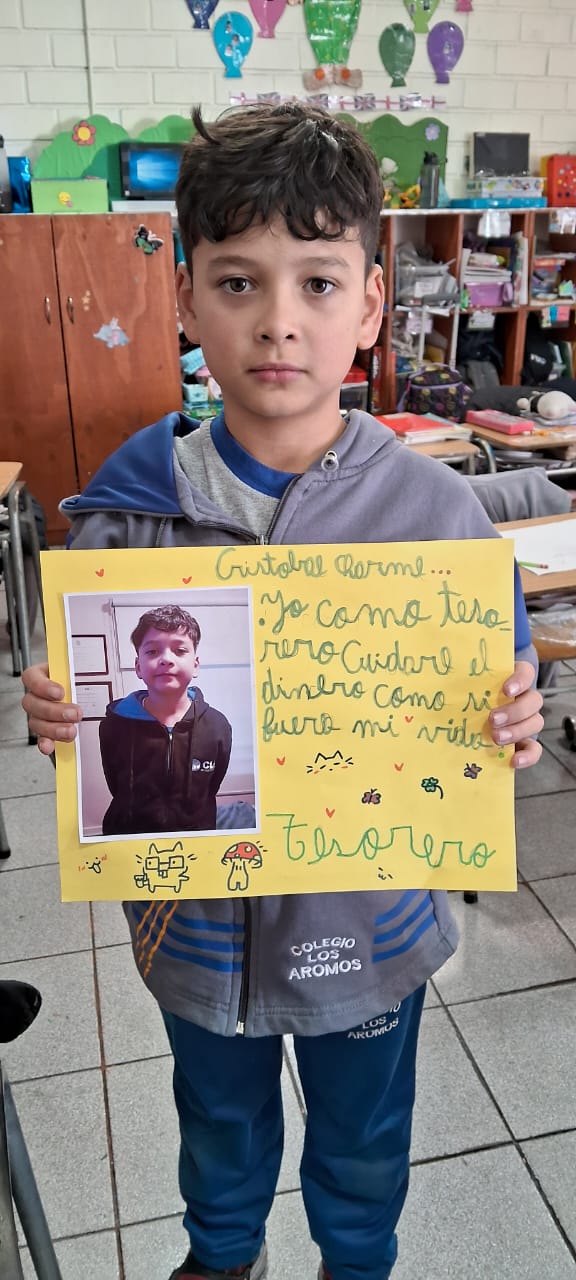 Cristobal Charme...
.Yo como teso_
rero Cuidaré el
dinero como si
fuera mi vida
Tesorero
COLEGIO
LOS
AROMOS
COLEGIO
LOS
AROMOS